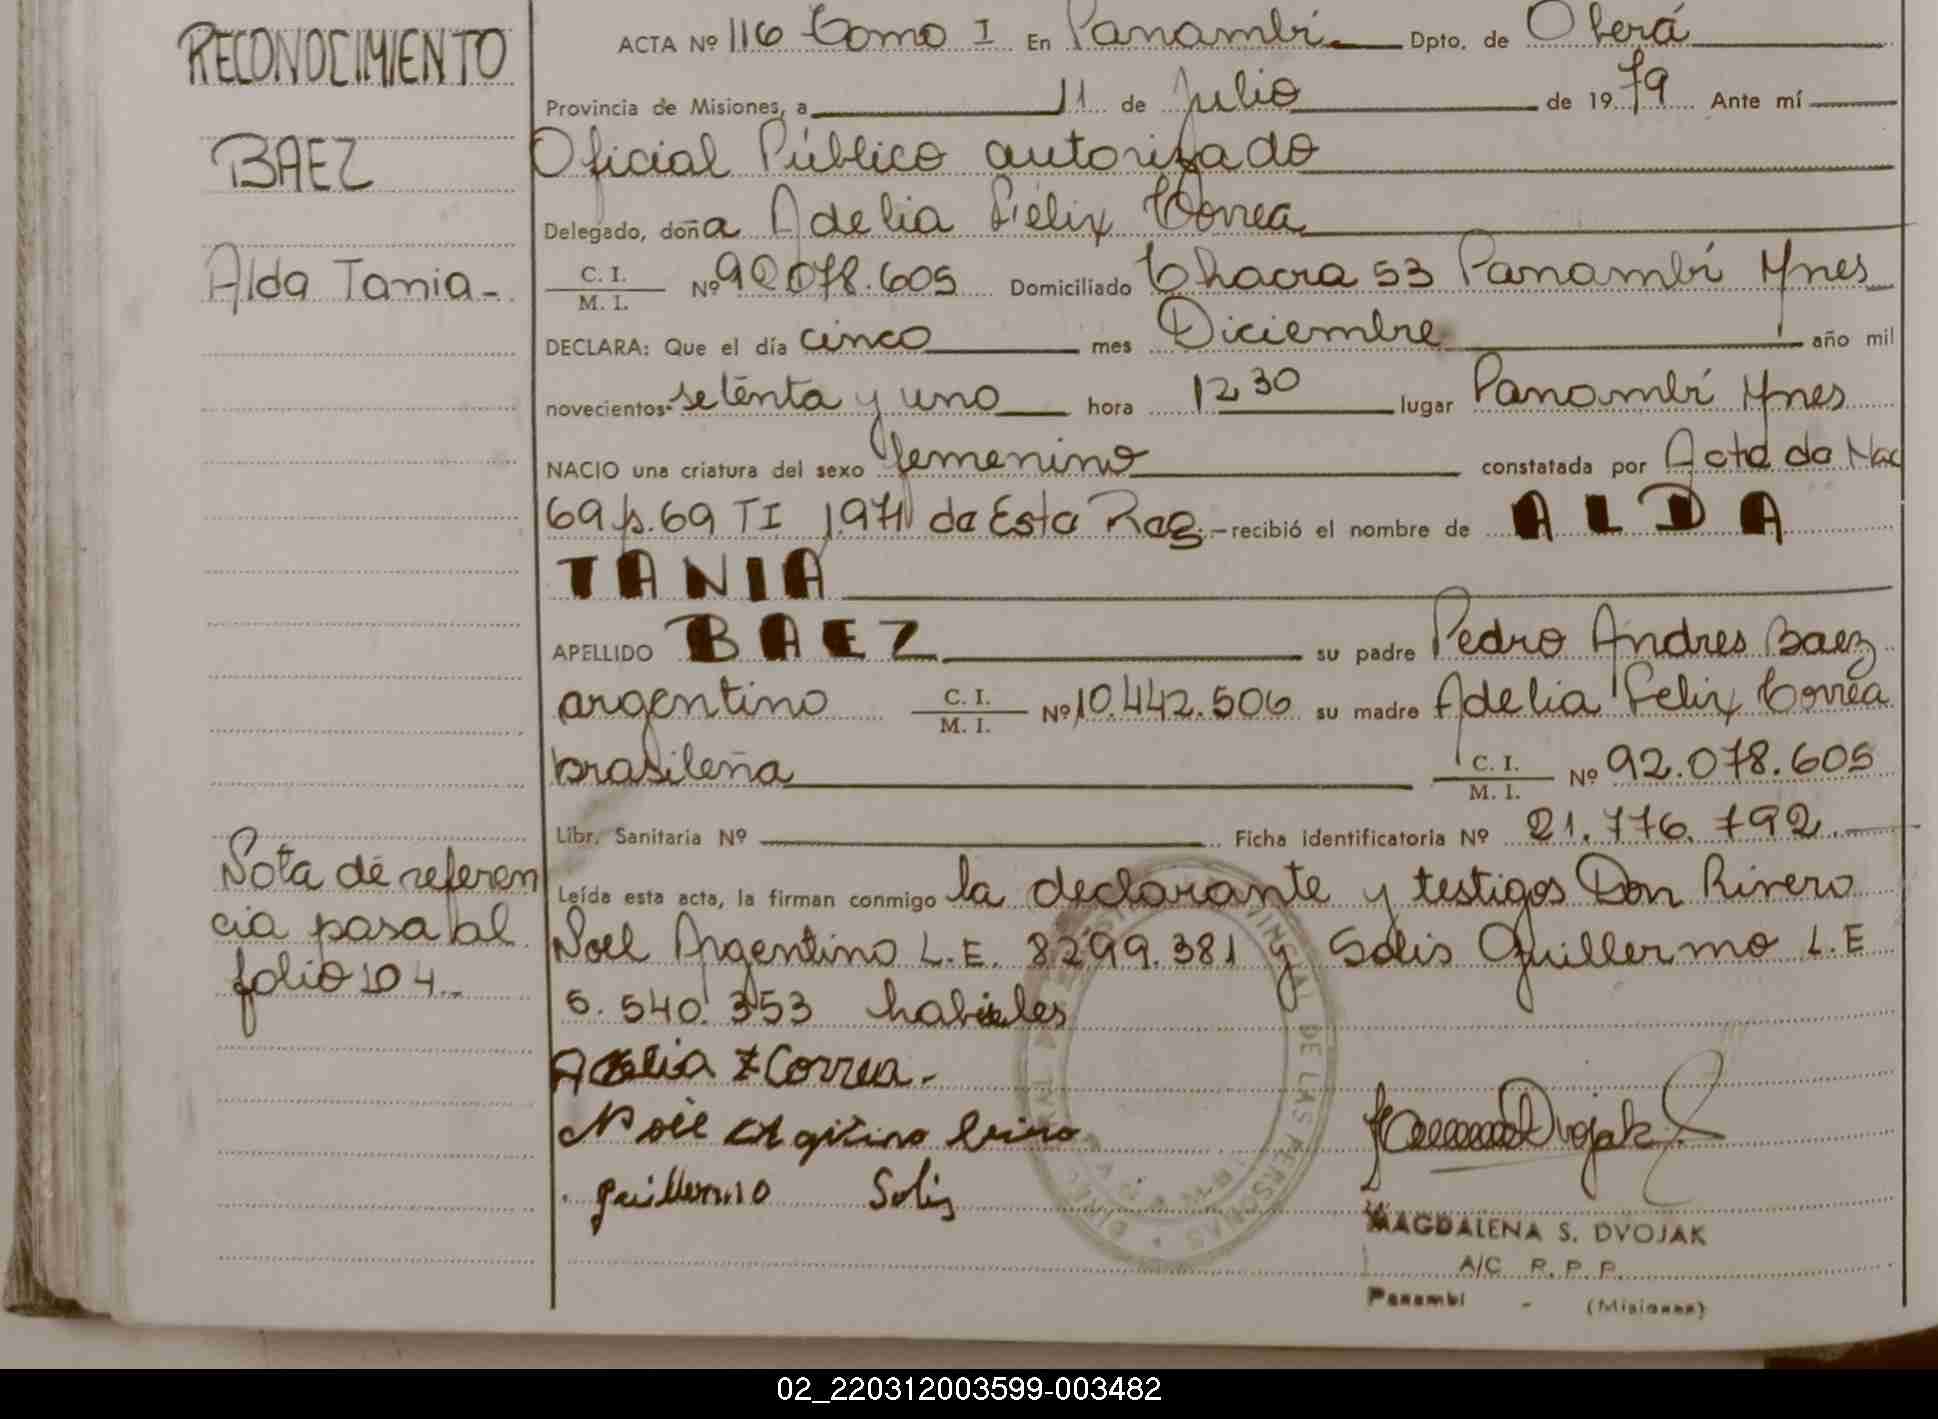 RECONOCIMIENTO
BAEZ
Alda Tania-
Nota de referen
cia pasa al
folio 104.-
ACTA Nº 116 Tomo I En Panambí Dpto. de Oberá
Provincia de Misiones, a 11 de Julio de 1979 Ante mí
Oficial Público autorizado
Delegado, doña Adelia Félix Correa
C. I. / M. I. Nº 92.078.605 Domiciliado Chacra 53 Panambí Mnes
DECLARA: Que el día cinco mes Diciembre año mil
novecientos setenta y uno hora 12 30 lugar Panambí Mnes
NACIO una criatura del sexo femenino constatada por Acta de Nac
69 f. 69 TI 1971 de Esta Reg.- recibió el nombre de ALDA
TANIA
APELLIDO BAEZ su padre Pedro Andres Baez
argentino C. I. / M. I. Nº 10.442.506 su madre Adelia Felix Correa
brasileña C. I. / M. I. Nº 92.078.605
Libr. Sanitaria Nº Ficha identificatoria Nº 21.776.792.
Leída esta acta, la firman conmigo la declarante y testigos Don Rivero
Noel Argentino L.E. 8299.381 y Solis Guillermo L.E
5.540.353 habiles
Adelia F Correa.-
Guillermo Solis
Dvojak
MAGDALENA S. DVOJAK
A/C R. P. P.
Panambí - (Misiones)
DE LAS PERSONAS
02_220312003599-003482